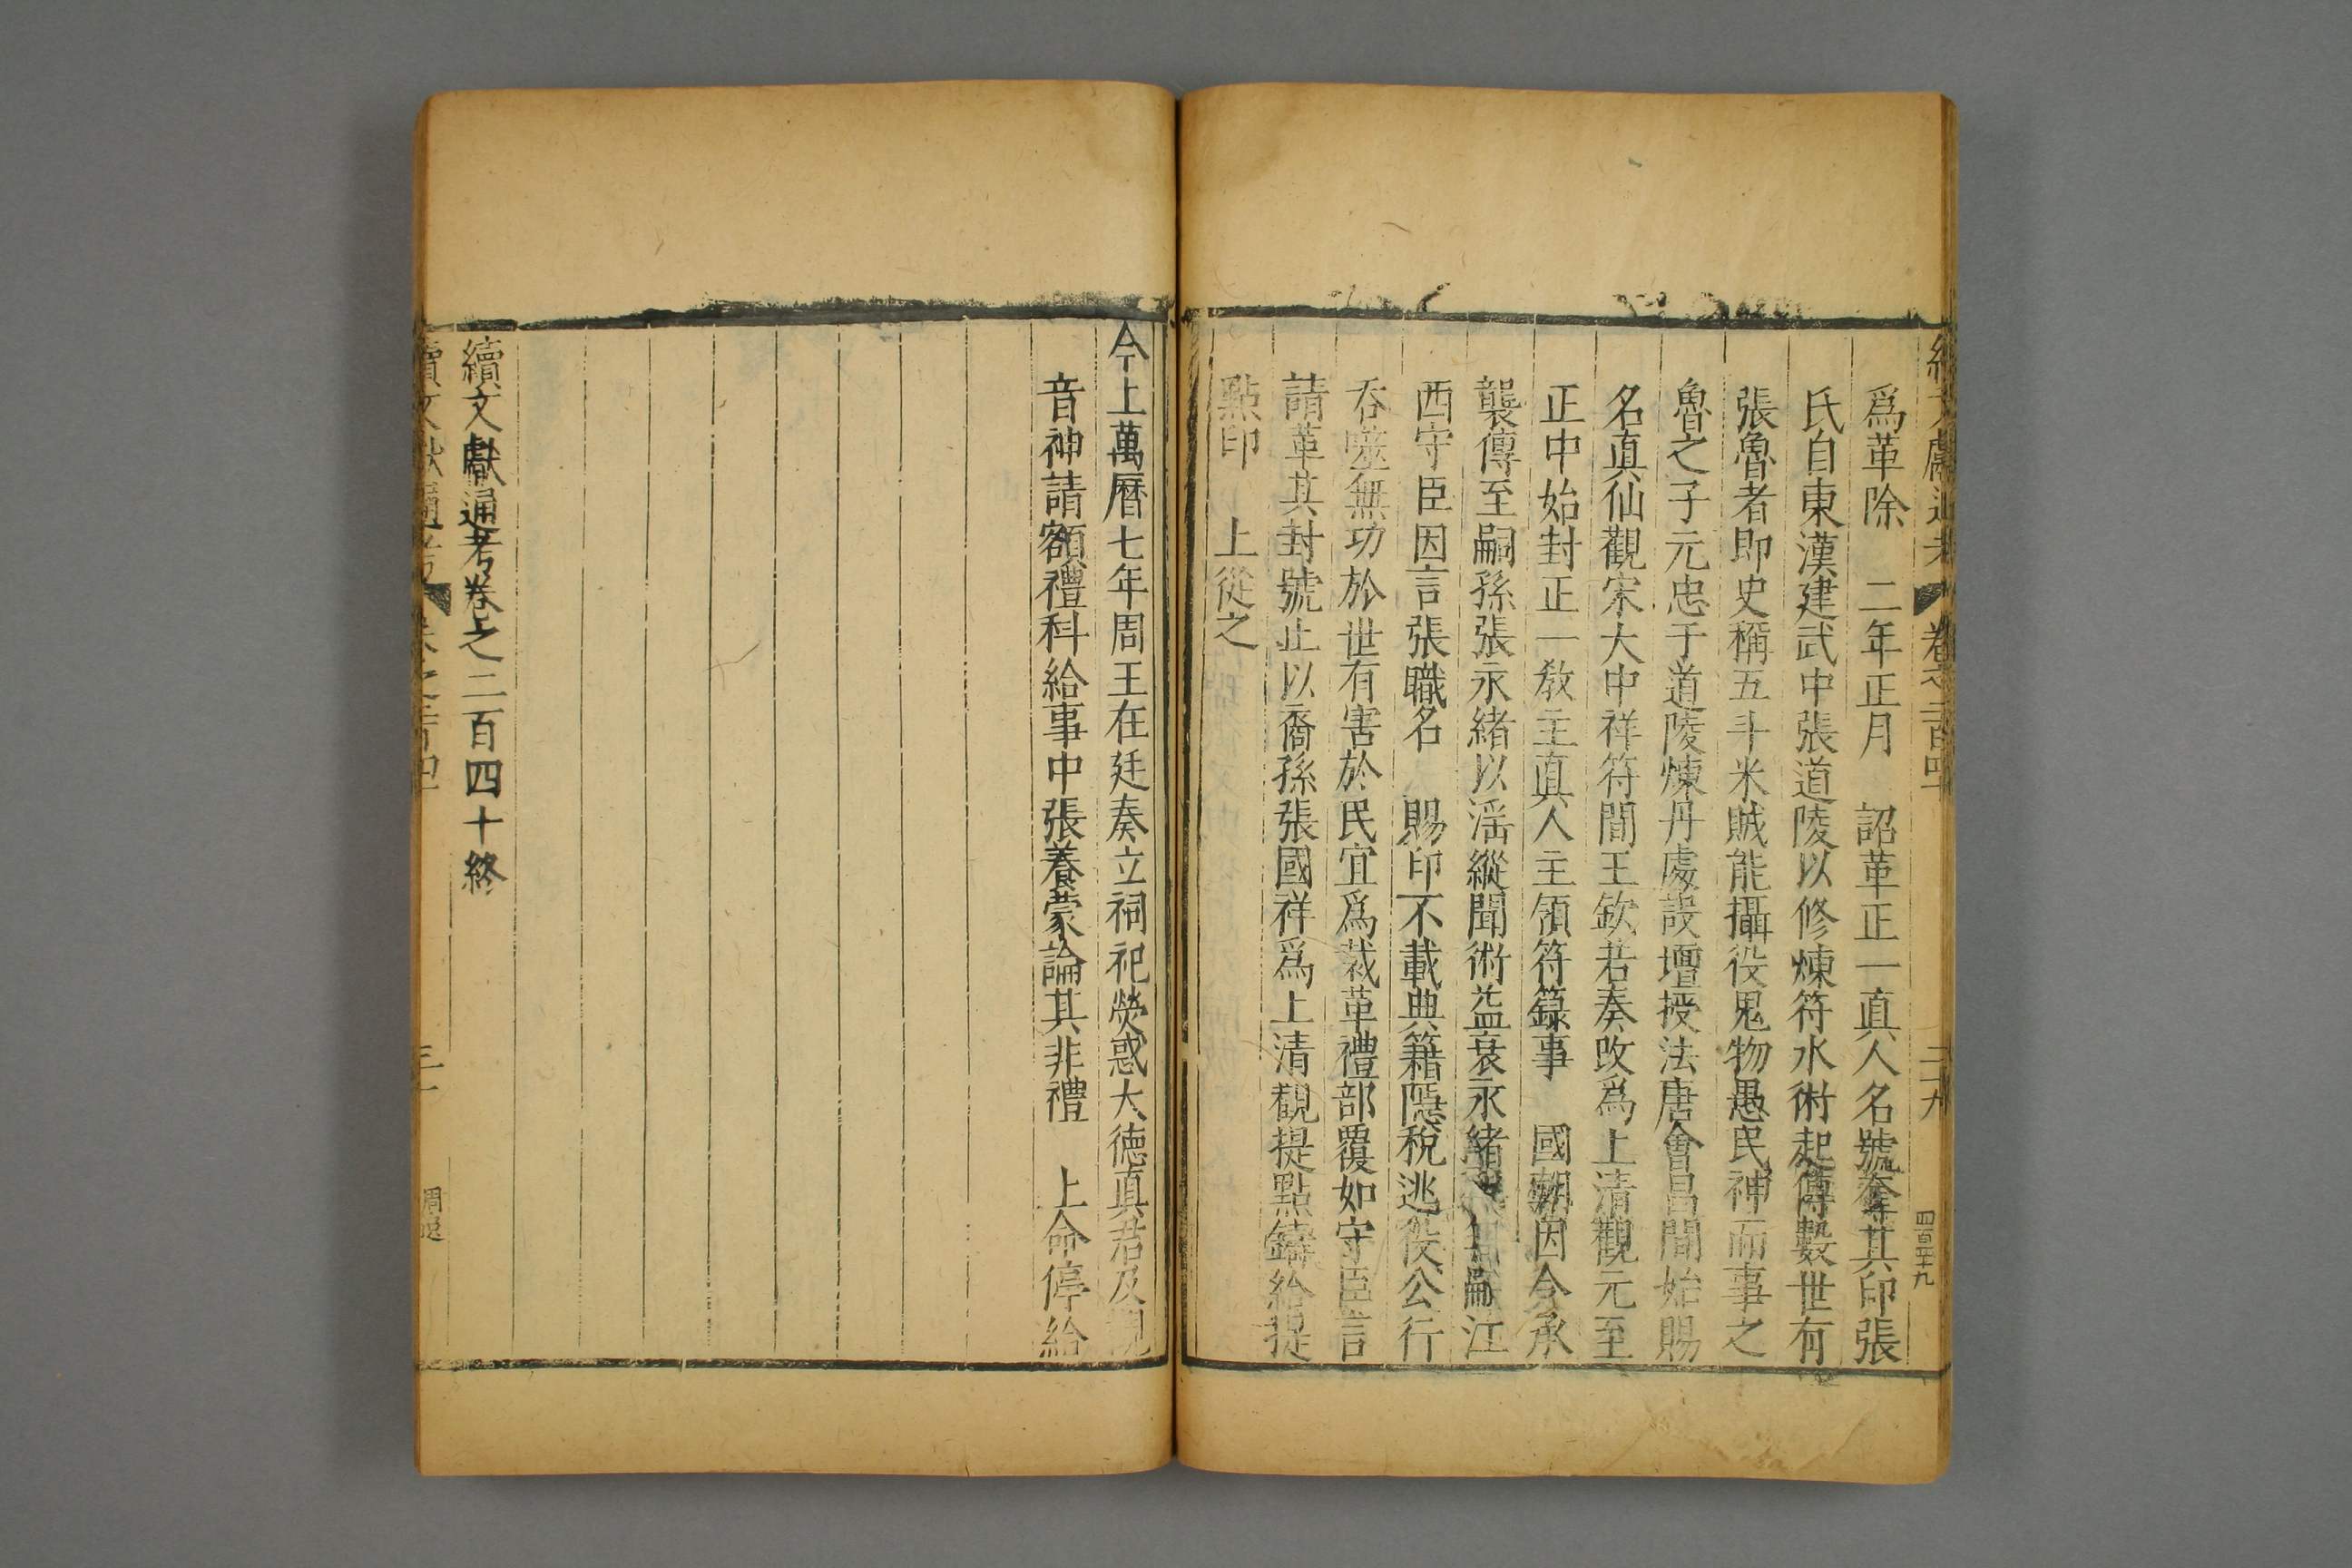 爲革除 二年正月 詔革正一真人名號奪其印張
氏自東漢建武中張道陵以修煉符水術起傳數世有
張魯者即史稱五斗米賊能攝役鬼物愚民神而事之
魯之子元忠于道陵煉丹處設壇授法唐會昌間始賜
名真仙觀宋大中祥符間王欽若奏改爲上清觀元至
正中始封正一教主真人主領符籙事 國朝因令承
襲傳至嗣孫張永緒以淫縱聞術益衰永緒 嗣江
西守臣因言張職名 賜印不載典籍隱稅逃役公行
吞噬無功於世有害於民宜爲裁革禮部覆如守臣言
請革其封號止以裔孫張國祥爲上清觀提點鑄給提
點印 上從之
續文獻通考 卷之二百四十 二十九 四百二十九
今上萬曆七年周王在廷奏立祠祀熒惑大德真君及觀
音神請額禮科給事中張養蒙論其非禮 上命停給
續文獻通考卷之二百四十終
續文獻通考 卷之二百四